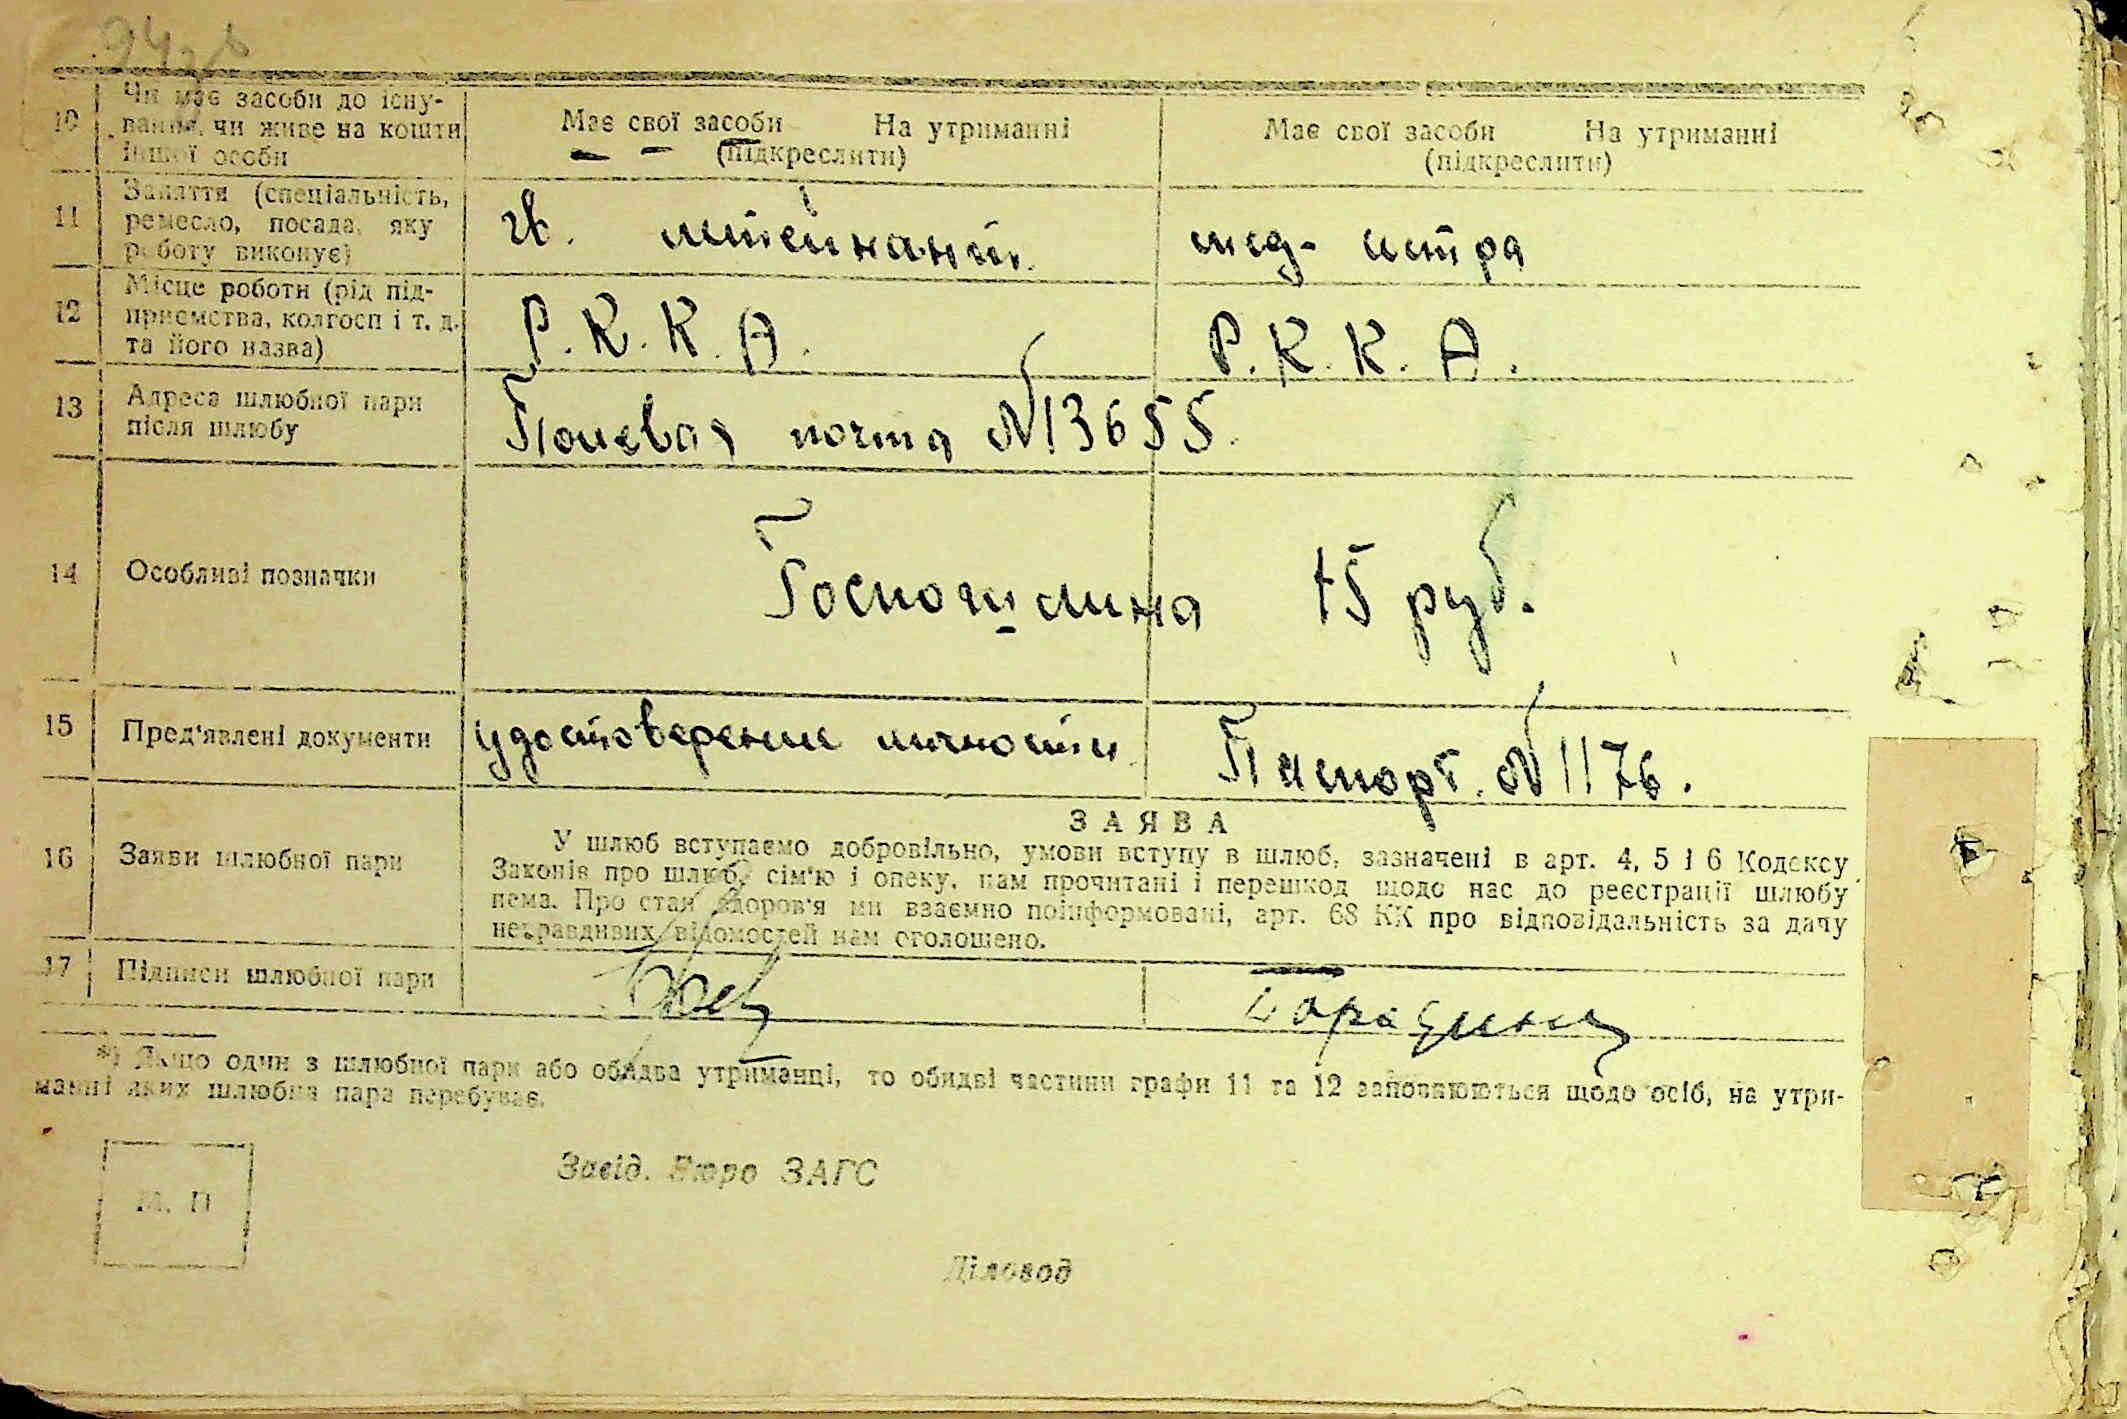 10 Чи має засоби до існу-
вання, чи живе на кошти
іншої особи
Має свої засоби На утриманні
(підкреслити)
Має свої засоби На утриманні
(підкреслити)
11 Заняття (спеціальність,
ремесло, посада, яку
роботу виконує)
гв. лейтенант.
мед-
12 Місце роботи (рід під-
приємства, колгосп і т. д.
та його назва)
Р. К. К. А.
Р. К. К. А.
13 Адреса шлюбної пари
після шлюбу
Полевая почта №13655.
14 Особливі позначки
Госпошлина 15 руб.
15 Пред'явлені документи
удостоверение личности
Паспорт. №1176.
16 Заяви шлюбної пари
ЗАЯВА
У шлюб вступаємо добровільно, умови вступу в шлюб, зазначені в арт. 4, 5 і 6 Кодексу
Законів про шлюб, сім'ю і опеку, нам прочитані і перешкод щодо нас до реєстрації шлюбу
нема. Про стан здоров'я ми взаємно поінформовані, арт. 68 КК про відповідальність за дачу
неправдивих відомостей нам оголошено.
17 Підписи шлюбної пари
*) Якщо один з шлюбної пари або обидва утриманці, то обидві частини графи 11 та 12 заповнюються щодо осіб, на утри-
манні яких шлюбна пара перебуває.
М. П
Завід. Бюро ЗАГС
Діловод